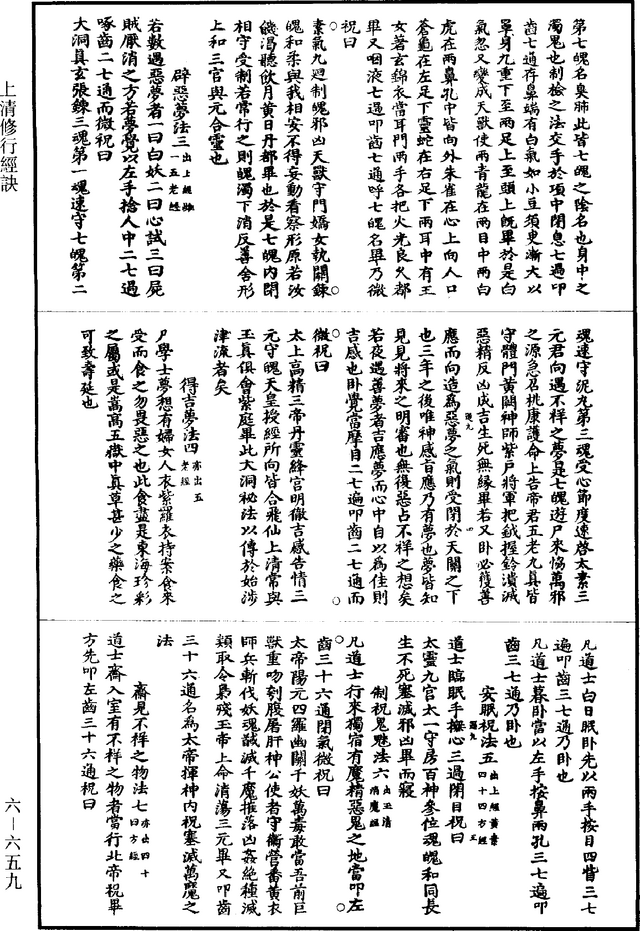 上清修行經訣
六—六五九
第七魄名臭肺此皆七魄之陰名也身中之
濁鬼也制檢之法交手於項中閉息七過叩
齒七通存鼻端有白氣如小豆須臾漸大以
單身九重下至兩足上至頭上既畢於是白
氣忽又變成天獸使兩青龍在兩目中兩白
虎在兩鼻孔中皆向外朱雀在心上向人口
蒼龜在左足下靈蛇在右足下兩耳中有玉
女著玄錦衣當耳門兩手各把火光良久都
畢又咽液七過叩齒七通呼七魄名畢乃微
祝曰
素氣九迴制魄邪凶天獸守門嬌女執關鍊
魄和柔與我相安不得妄動看察形原若汝
飢渴聽飲月黃日丹都畢也於是七魄內閉
相守受制若常行之則魄濁下消反善舍形
上和三官與元合靈也
辟惡夢法三出上經始一五老經
若數遇惡夢者一曰白妖二曰心試三曰屍
賊厭消之方若夢覺以左手捻人中二七過
啄齒二七通而微祝曰
大洞真玄張鍊三魂第一魂速守七魄第二
魂速守泥丸第三魂受心節度速啓太素三
元君向遇不祥之夢是七魄遊尸來協萬邪
之源急召桃康護命上告帝君五老九真皆
守體門黃闕神師紫戶將軍把鉞握鈴潰滅
惡精反凶成吉生死無緣畢若又卧必獲善
應而向造為惡夢之氣則受閉於天關之下
也三年之後唯神感旨應乃有夢也夢皆知
見見將來之明審也無復惡占不祥之想矣
若夜遇善夢者吉應夢而心中自以為佳則
吉感也卧覺當摩目二七遍叩齒二七通而
微祝曰
太上高精三帝丹靈絳宮明徹吉感告情三
元守魄天皇授經所向皆合飛仙上清常與
玉真俱會紫庭畢此大洞秘法以傳於始涉
津流者矣
得吉夢法四亦出五老經
凡學士夢想有婦女人衣紫羅衣持案食來
受而食之勿畏惡之也此食盡是東海珍彩
之屬或是嵩高五嶽中真草甚少之藥食之
可致壽延也
凡道士白日眠卧先以兩手按目四眥三七
遍叩齒三七通乃卧也
凡道士暮卧當以左手按鼻兩孔三七遍叩
齒三七通乃卧也
安眠祝法五出上經黃素四十四方經
道士臨眠手撫心三過閉目祝曰
太靈九宮太一守房百神參位魂魄和同長
生不死塞滅邪凶畢而寢
制祝鬼魅法六出玉清消魔經
凡道士行來獨宿有魔精惡鬼之地當叩左
齒三十六通閉氣微祝曰
太帝陽元四羅幽關千妖萬毒敢當吾前巨
獸重吻刳腹屠肝神公使者守衛營番黃衣
師兵斬伐妖魂馘滅千魔摧落凶姦絕種滅
類取令梟殘玉帝上命清蕩三元畢又叩齒
三十六通名為太帝揮神內祝塞滅萬魔之
法
齋見不祥之物法七亦出四十四方經
道士齋入室有不祥之物者當行北帝祝畢
方先叩左齒三十六通祝曰